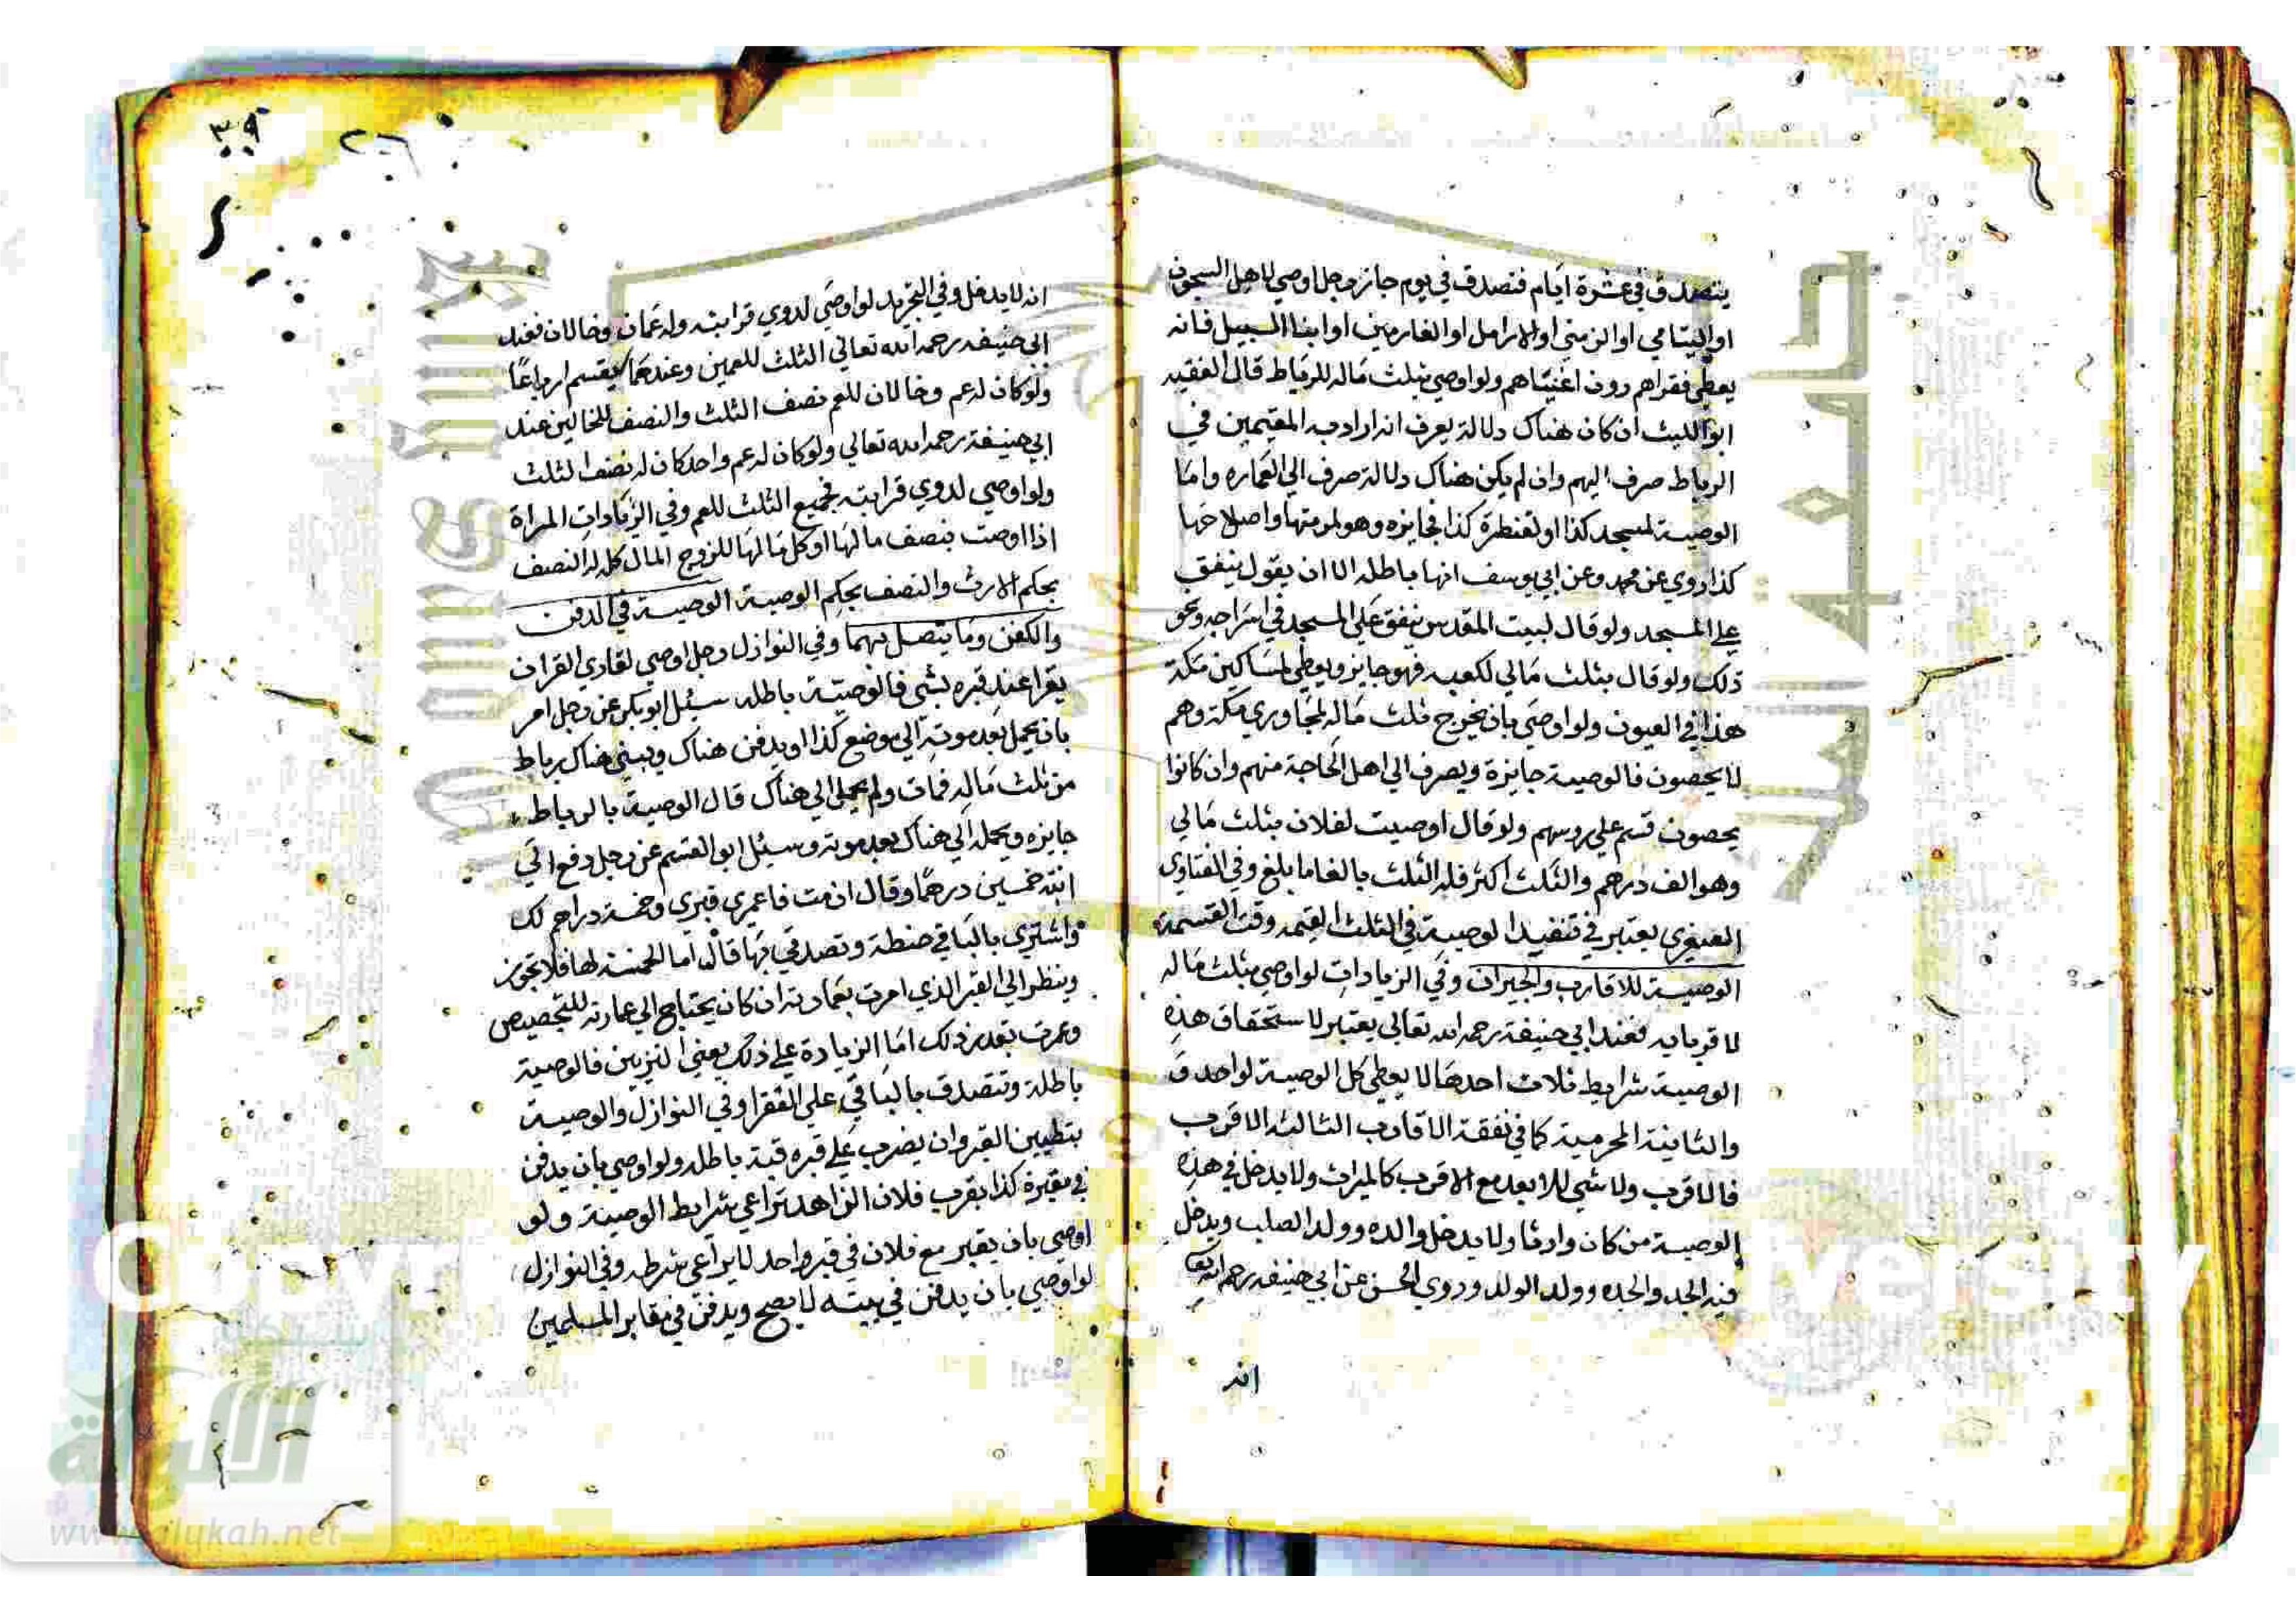 يتصدق في عشرة ايام فتصدق في يوم جاز رجل اوصي لاهل السجون
او اليتامي او الزمني او الارامل او الغارمين او ابنا السبيل فانه
يعطي فقراهم دون اغنياهم ولو اوصي بثلث ماله للرباط قال الفقيه
ابو الليث ان كان هناك دلالة يعرف انه اراد به المقيمين في
الرباط صرف اليهم وان لم يكن هناك دلالة صرف الي العماره واما
الوصية لمسجد كذا او لقنطرة كذا فجايزه وهو لمرمتها واصلاحها
كذا روي عن محمد وعن ابي يوسف انها باطله الا ان يقول ينفق
علي المسجد ولو قال لبيت المقدس ينفق علي المسجد في سراجه ونحو
ذلك ولو قال بثلث مالي لكعبه فهو جايز ويعطي لمساكين مكة
هذا في العيون ولو اوصي بان يخرج ثلث ماله لمجاوري مكة وهم
لا يحصون فالوصية جايزة ويصرف الي اهل الحاجة منهم وان كانوا
يحصون قسم علي روسهم ولو قال اوصيت لفلان بثلث مالي
وهو الف درهم والثلث اكثر فله الثلث بالغا ما بلغ وفي الفتاوي
الصغري يعتبر في تنفيذ الوصية في الثلث القيمه وقت القسمة
الوصية للاقارب والجيران وفي الزيادات لو اوصي بثلث ماله
لاقربايه فعند ابي حنيفة رحمه الله تعالي يعتبر لاستحقاق هذه
الوصية شرايط ثلاث احدها لا يعطي كل الوصية لواحد و
والثانية المحرمية كما في نفقة الاقارب الثالثه الاقرب
فالاقرب ولا شي للابعد مع الاقرب كالميراث ولا يدخل في هذه
الوصية من كان وارثا ولا يدخل والده وولد الصلب ويدخل
فيه الجد والجده وولد الولد وروي الحسن عن ابي حنيفه رحمه الله تعا
انه
٣٩
انه لا يدخل وفي التجريد لو اوصي لدوي قرابته وله عمان وخالان فعند
ابي حنيفه رحمه الله تعالي الثلث للعمين وعندهما يقسم ارباعا
ولو كان له عم وخالان للعم نصف الثلث والنصف للخالين عند
ابي حنيفة رحمه الله تعالي ولو كان له عم واحد كان له نصف الثلث
ولو اوصي لدوي قرابته فجميع الثلث للعم وفي الزيادات المراة
اذا اوصت بنصف مالها او كل مالها للزوج المال كله له النصف
بحكم الارث والنصف بحكم الوصية الوصية في الدفن
والكفن وما يتصل بهما وفي النوازل رجل اوصي لقاري القران
يقرا عند قبره بشي فالوصية باطله سيئل ابو بكر عن رجل امر
بان يحمل بعد موته الي موضع كذا او يدفن هناك ويبني هناك رباط
من ثلث ماله فمات ولم يحمل الي هناك قال الوصية بالرباط
جايزه ويحمله الي هناك بعد موته وسيئل ابو القسم عن رجل دفع الي
ابنته خمسين درهما وقال ان مت فاعمري قبري وخمسة دراهم لك
واشتري بالباقي حنطة وتصدقي بها قال اما الخمسة لها فلا تجوز
وينظر الي القبر الذي امرت بعمارته ان كان يحتاج الي عمارته للتجصيص
وعمرت بقدر ذلك اما الزيادة علي ذلك يعني التزيين فالوصية
باطلة وتتصدق بالباقي علي الفقرا وفي النوازل والوصية
بتطيين القبر وان يضرب علي قبره قبة باطله ولو اوصي بان يدفن
في مقبرة كذا بقرب فلان الزاهد تراعي شرايط الوصية ولو
اوصي بان يقبر مع فلان في قبر واحد لا يراعي شرطه وفي النوازل
لو اوصي بان يدفن في بيته لا يصح ويدفن في مقابر المسلمين
شبكة
الألوكة
www.alukah.net